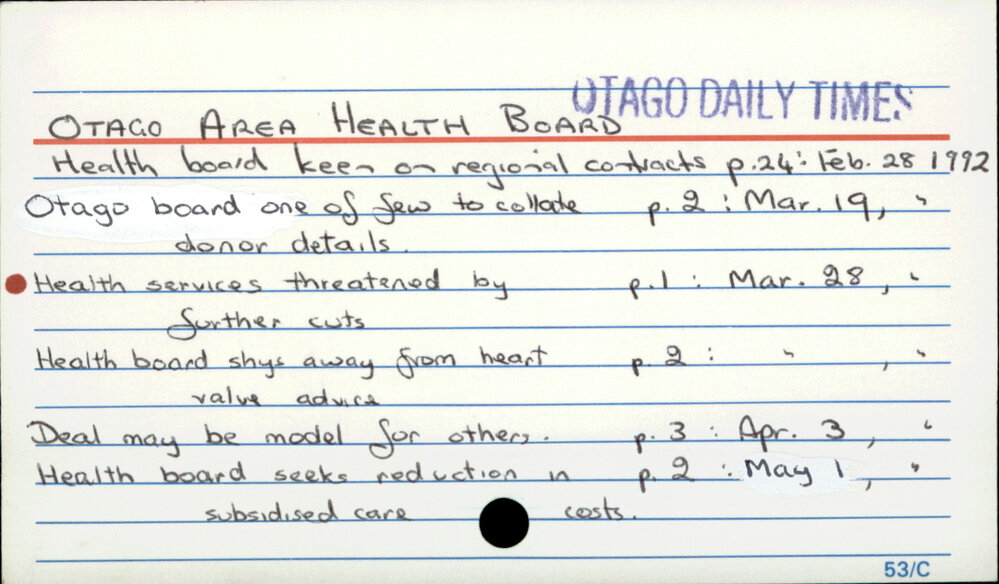 OTAGO DAILY TIMES
OTAGO AREA HEALTH BOARD
Health board keen on regional contracts p.24: Feb. 28 1992
Otago board one of few to collate p. 2 : Mar. 19, "
donor details.
Health services threatened by p.1 : Mar. 28, "
further cuts
Health board shys away from heart p. 2 : " , "
valve advice
Deal may be model for others. p. 3 : Apr. 3, "
Health board seeks reduction in p. 2 : May 1, "
subsidised care costs.
53/C